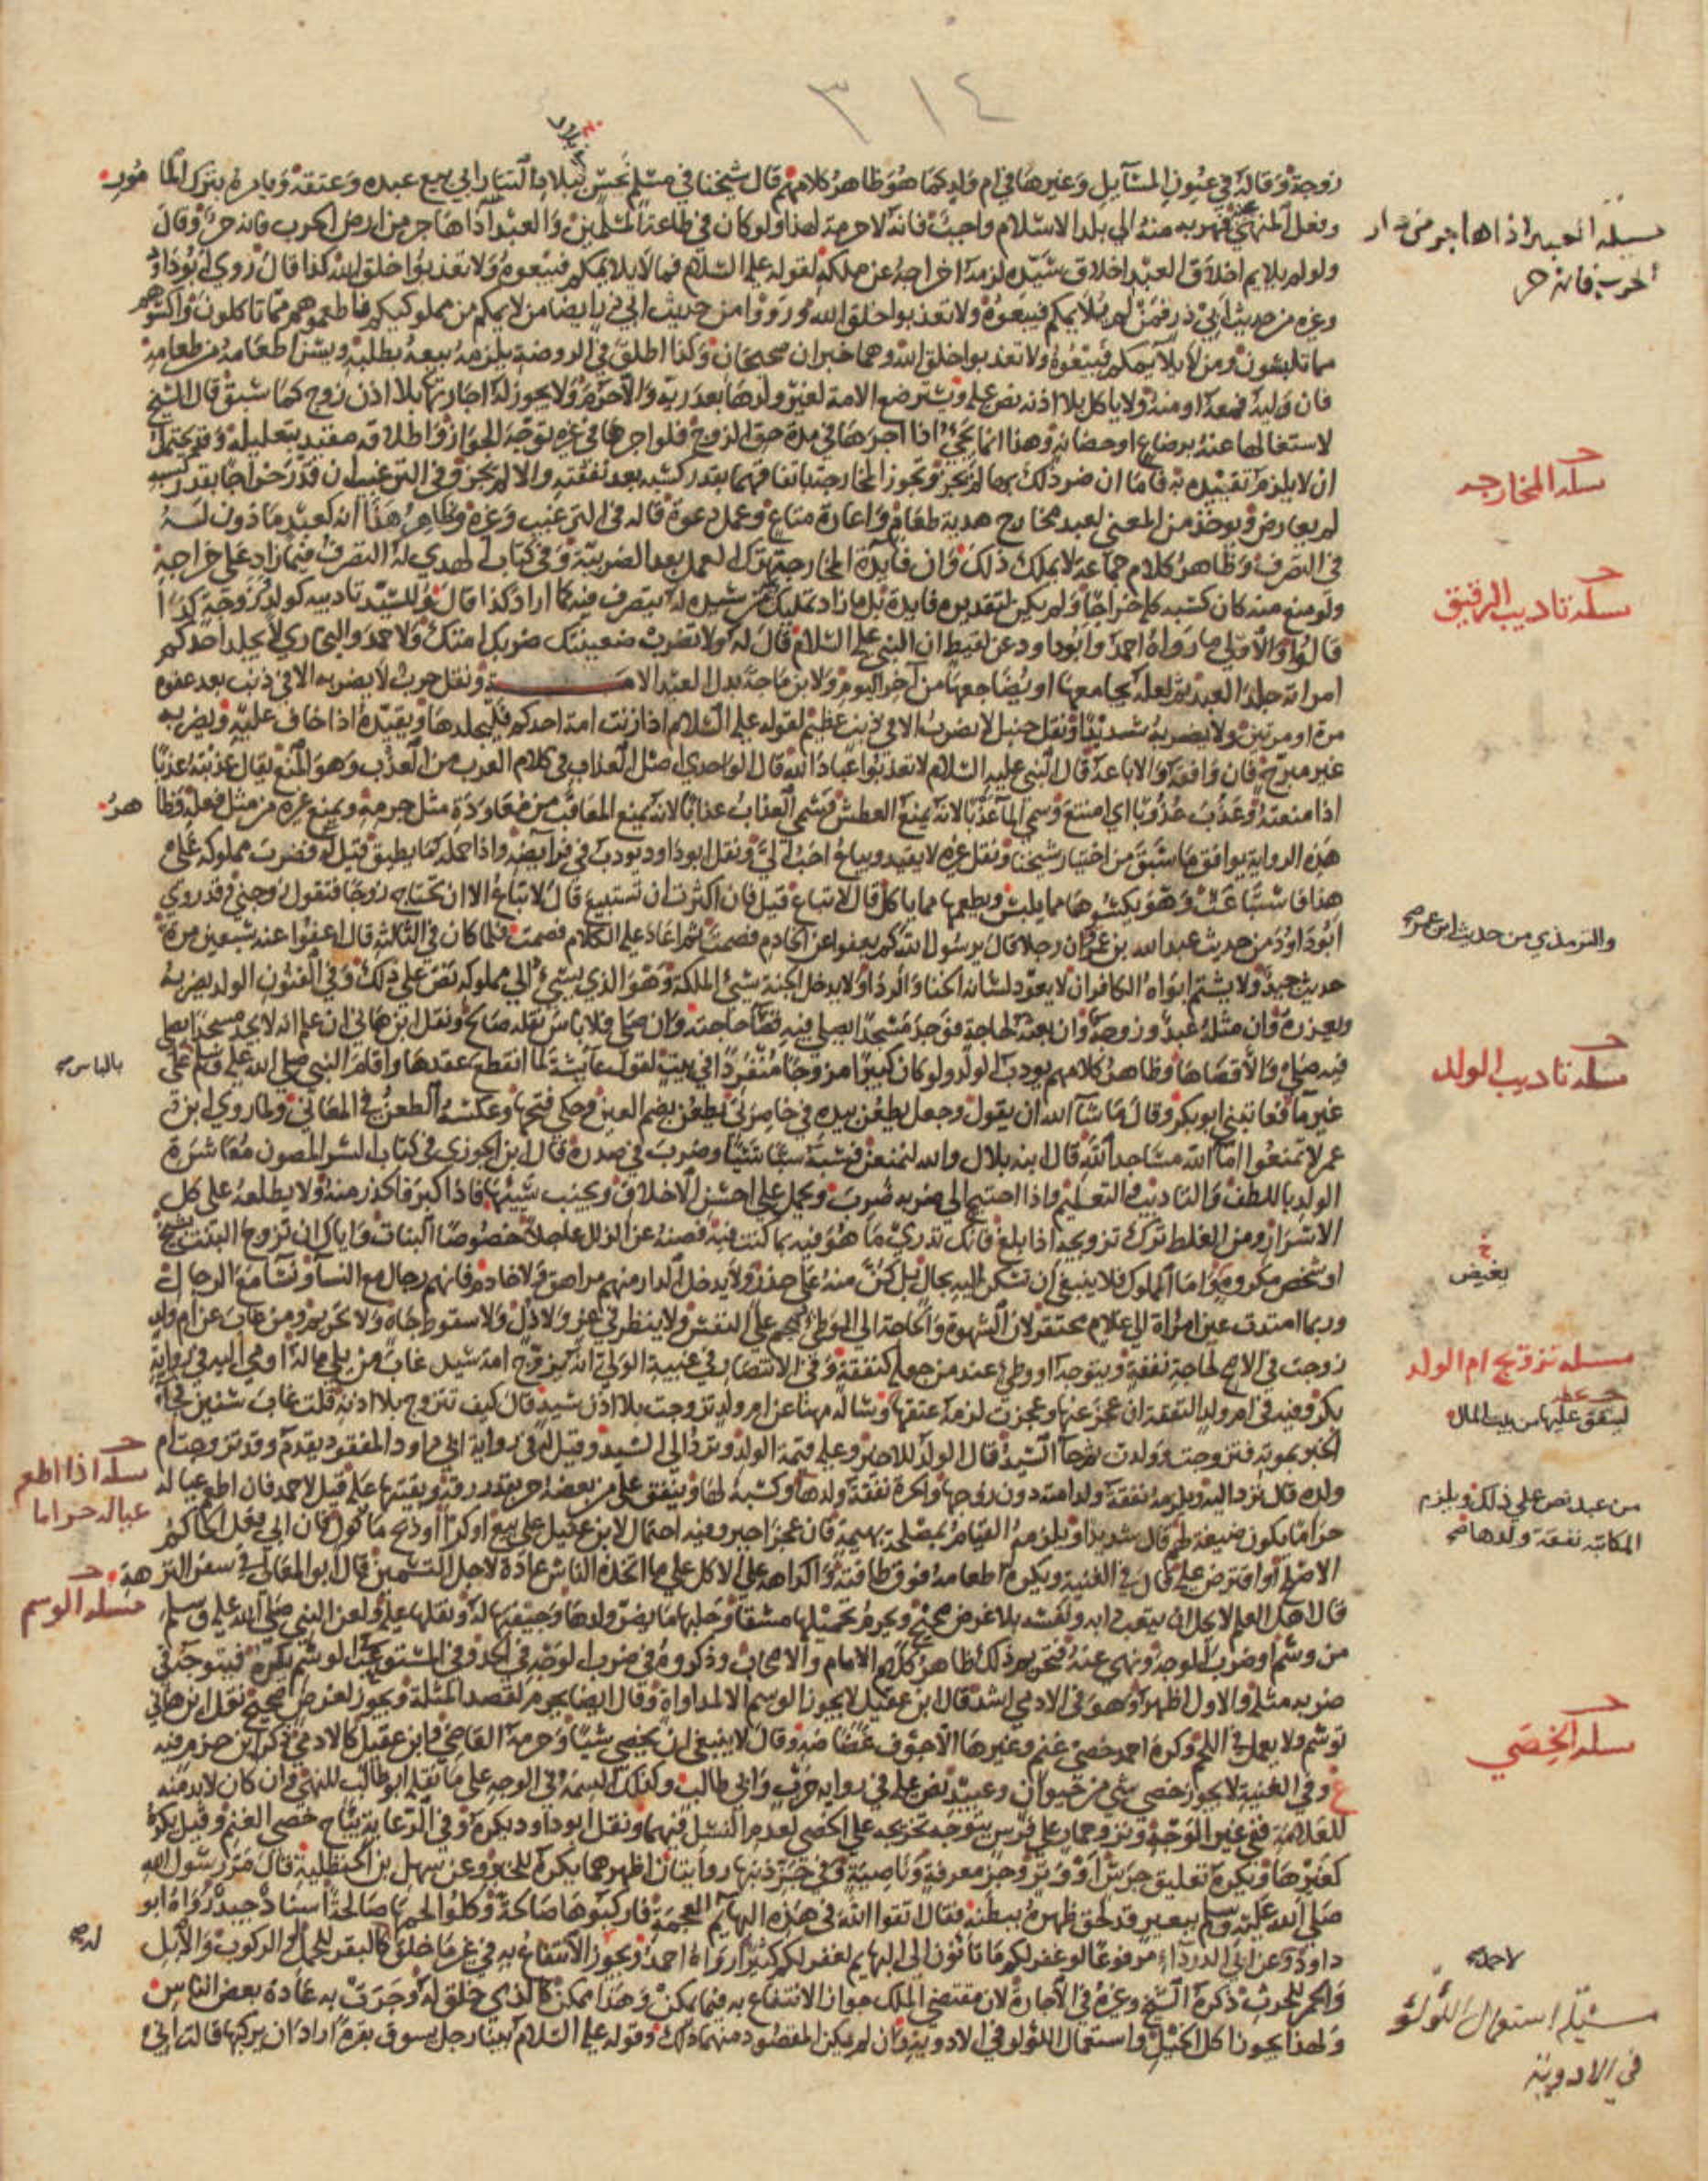 ٣١٤
زوجة وقاله في عيون المسائل وغيرها في ام ولد كما هو ظاهر كلامهم قال شيخنا في مسلم بجيش ببلاد التتار ابى بيع عبده وعتقه ويامره بترك المامور
وفعل المنهي فهربه منه الى بلد الاسلام واجب فانه لا حرمة لهذا ولو كان في طاعة المسلمين والعبد اذا هاجر من ارض الحرب فانه حر وقال
ولو لم يلايم اخلاق العبد اخلاق سيده لزمه اخراجه عن ملكه لقوله عليه السلام فما لا يلايمكم فبيعوه ولا تعذبوا خلق الله كذا قال روى ابو داود
وغيره من حديث ابي ذر فمن لم يلايمكم فبيعوه ولا تعذبوا خلق الله ورووا من حديث ابي ذر ايضا من لايمكم من مملوكيكم فاطعموهم مما تاكلون واكسوهم
مما تلبسون ومن لا يلايمكم فبيعوه ولا تعذبوا خلق الله وهما خبران صحيحان وكذا اطلق في الروضة يلزمه بيعه بطلبه ويسن اطعامه من طعامه
فان وليه فمعه او منه ولا ياكل بلا اذنه نص عليه وتسترضع الامة لغير ولدها بعد ريه والا حرم ولا يجوز له اجارتها بلا اذن زوج كما سبق قال الشيخ
لاشتغالها عنه برضاع او حضانة وهذا انما يجيء اذا اجرها في مدة حق الزوج فلو اجرها في غيره توجه الجواز واطلاقه مقيد بتعليله وقد يحتمل
ان لا يلزم تقييده به فاما ان ضر ذلك بها لم يجز وتجوز المخارجة باتفاقهما بقدر كسبه بعد نفقته والا لم يجز وفي الترغيب ان قدر خراجا بقدر كسبه
لم يعارض ويوخذ من المغني لعبد مخارج هدية طعام واعارة متاع وعمل دعوة قاله في الترغيب وغيره وظاهر هذا انه كعبد ماذون له
في التصرف وظاهر كلام جماعة لا يملك ذلك وان فائدة المخارجة ترك العمل بعد الضريبة وفي كتاب الهدي له التصرف فيما زاد على خراجه
ولو منع منه كان كسبه كله خراجا ولم يكن لتقديره فايدة بل ما زاد تمليك من سيده له يتصرف فيه كما اراد كذا قال وللسيد تاديبه كولد وزوجة كذا
قالوا والاولى ما رواه احمد وابو داود عن لقيط ان النبي عليه السلام قال له ولا تضرب ضعينتك ضربك امتك ولاحمد والبخاري لا يجلد احدكم
امراته جلد العبد ثم لعله يجامعها او يضاجعها من آخر اليوم ولابن ماجة بدل العبد الامة ونقل حرب لا يضربه الا في ذنب بعد عفوه
مرة او مرتين ولا يضربه شديدا ونقل حنبل لا يضرب الا في ذنب عظيم لقوله عليه السلام اذا زنت امة احدكم فليجلدها ويقيده اذا خاف عليه ويضربه
غير مبرح فان وافقه والا باعه قال النبي عليه السلام لا تعذبوا عباد الله قال الواحدي اصل العذاب في كلام العرب من العذب وهو المنع يقال عذبته عذبا
اذا منعته وعذب عذوبا اي امتنع وسمي الماء عذبا لانه يمنع العطش فسمي العذاب عذابا لانه يمنع المعاقب من معاودة مثل جرمه ويمنع غيره من مثل فعله فظاهر
هذه الرواية يوافق ما سبق من اختيار شيخنا ونقل غيره لا يقيد ويباع احب الي ونقل ابو داود يودب في فرايضه واذا حمله كما يطيق قيل له فضرب مملوكه على
هذا فاستباعت وهو يكسوها مما يلبس ويطعمها مما ياكل قال لا تباع قيل فان اكثرت ان تستبيع قال لا تباع الا ان تحتاج زوجا فتقول زوجني وقد روى
ابو داود من حديث عبد الله بن عمر ان رجلا قال يرسول الله كم يعفو عن الخادم فصمت ثم اعاد عليه الكلام فصمت فلما كان في الثالثة قال اعفوا عنه سبعين مرة
حديث جيد ولا يشتم ابواه الكافران لا يعود لسانه الخنا والردا ولا يدخل الجنة سيئ الملكة وهو الذي يسيء الى مملوكه نص على ذلك وفي الفنون الولد يضربه
ويعزره وان مثله عبد وزوجة وان بعثه لحاجة فوجد مسجدا يصلي فيه قضى حاجته وان صلى فلا باس نقله صالح ونقل ابن هاني ان علم انه لا يجد مسجدا يصلي
فيه صلى والا قضاها وظاهر كلامهم يودب الولد ولو كان كبيرا مزوجا منفردا في بيت لقول عايشة لما انقطع عقدها واقام النبي صلى الله عليه وسلم على
غير ما فعاتبني ابو بكر وقال ما شا الله ان يقول وجعل يطعن بيده في خاصرتي يطعن بضم العين وحكي فتحها وعكسه الطعن في المعاني ولما روى ابن
عمر لا تمنعوا اما الله مساجد الله قال ابنه بلال والله لنمنعهن فسبه سبا سيئا وضرب في صدره قال ابن الجوزي في كتاب السر المصون معاشرة
الولد باللطف والتاديب والتعليم واذا احتيج الى ضربه ضرب ويحمل على احسن الاخلاق ويجنب سيئها فاذا كبر فالحذر منه ولا يطلعه على كل
الاسرار ومن الغلط ترك تزويجه اذا بلغ فانك تدري ما هو فيه بما كنت فيه فصنه عن الزلل عاجلا خصوصا البنات واياك ان تزوج البنت بشيخ
او شخص مكروه واما المملوك فلا ينبغي ان تسكن اليه بحال بل كن منه على حذر ولا يدخل الدار منهم مراهق ولا خادم فانهم رجال مع النسا ونسا مع الرجال
وربما امتدت عين امراة الى غلام محتقر لان الشهوة والحاجة الى الوطئ تهجم على النفس ولا ينظر في عز ولا ذل ولا سقوط جاه ولا تحريم ومن غاب عن ام ولد
زوجت في الاصح لحاجة نفقة ويتوجه او وطئ عند من جعله كنفقة وفي الانتصار في غيبة الولي انه يزوج امة سيد غاب من يلي ماله اومى اليه في رواية
بكر وفيه في ام ولد النفقة ان عجز عنها وعجزت لزمه عتقها وساله مهنا عن ام ولد تزوجت بلا اذن سيد قال كيف تتزوج بلا اذنه قلت غاب سنتين فجا
الخبر بموته فتزوجت وولدت ثم جا السيد قال الولد للاخير وعليه قيمة الولد وترد الى السيد وقيل له في رواية ابي داود المفقود يقدم وقد تزوجت ام
ولده قال ترد اليه ويلزمه نفقة ولد امته دون زوجها والحرة نفقة ولدها وكسبه لها وينفق على من بعضه حر بقدر رقه وبقيتها عليه قيل لاحمد فان اطعم عياله
حراما يكون ضيعة لهم قال شديدا ويلزمه القيام بمصلحة بهيمة فان عجز اجبر وفيه احتمال لابن عقيل على بيع او كرا او ذبح ماكول فان ابى فعل الحاكم
الاصلح او اقترض عليه قال في الغنية ويكره اطعامه فوق طاقته واكراهه على الاكل على ما اتخذه الناس عادة لاجل التسمين قال ابو المعالي في سفر النزهة
قال اهل العلم لا يحل ان يتعب دابه ونفسه بلا غرض صحيح ويحرم تحميلها مشقا وحلبها ما يضر ولدها وجيفتها له ونقلها عليه ولعن النبي صلى الله عليه وسلم
من وسم او ضرب الوجه ونهى عنه فتحريم ذلك ظاهر كلام الامام والاصحاب وذكروه في ضرب الوجه في الحد وفي المستوعب الوسم يكره فيتوجه في
ضربه مثله والاول اظهر وهو في الادمي اشد قال ابن عقيل لا يجوز الوسم الا لمداواة وقال ايضا يحرم لقصد المثلة ويجوز لغرض صحيح نقل ابن هاني
توسم ولا يعمل في اللحم وكره احمد خصي غنم وغيرها الا خوف غضاضة وقال لا ينبغي ان يخصي شيئا وحرمه القاضي وابن عقيل كالادمي ذكر ابن حزم فيه
ع وفي الغنية لا يجوز خصي شي من حيوان وعبيد نص عليه في رواية حرب وابي طالب وكذلك السمة في الوجه على ما نقله ابو طالب للنهي وان كان لا بد منه
للعلامة ففي غير الوجه ونزو حمار على فرس يتوجه تخريجه على الخصي لعدم النسل فيهما ونقل ابو داود يكره وفي الرعاية يباح خصي الغنم وقيل يكره
كغيرها ويكره تعليق جرس او وتر وجز معرفة وناصية وفي جز ذنبها روايتان اظهرهما يكره للخبر وعن سهل بن الحنظلية قال مر رسول الله
صلى الله عليه وسلم ببعير قد لحق ظهره ببطنه فقال اتقوا الله في هذه البهائم المعجمة فاركبوها صالحة وكلوا لحمها صالحة اسناد جيد رواه ابو
داود وعن ابي الدرداء مرفوعا لو غفر لكم ما تاتون الى البهايم لغفر لكم كثيرا رواه احمد ويجوز الانتفاع به في غير ما خلق كالبقر للحمل او الركوب والابل
والحمر للحرث ذكره الشيخ وغيره في الاجارة لان مقتضى الملك جواز الانتفاع به فيما يمكن وهذا ممكن كالذي خلق له وجرت به عادة بعض الناس
ولهذا يجوز اكل الخيل واستعمال اللؤلؤ في الادوية وان لم يكن المقصود منهما ذلك وقوله عليه السلام بينا رجل يسوق بقرة اراد ان يركبها قالت اني
مسئلة العبد اذا هاجر من دار
الحرب فانه حر
مسئلة المخارجه
مسئلة تاديب الرقيق
والترمذي من حديث ابن عمر صح
مسئلة تاديب الولد
بالباس صح
بغيض
مسئلة تزويج ام الولد
لينفق عليها من بيت المال
من عبد نص على ذلك ويلزم
المكاتبة نفقة ولدها صح
مسئلة اذا اطعم
عياله حراما
مسئلة الوسم
مسئلة الخصي
لاجل
مسئلة استعمال اللؤلؤ
في الادوية